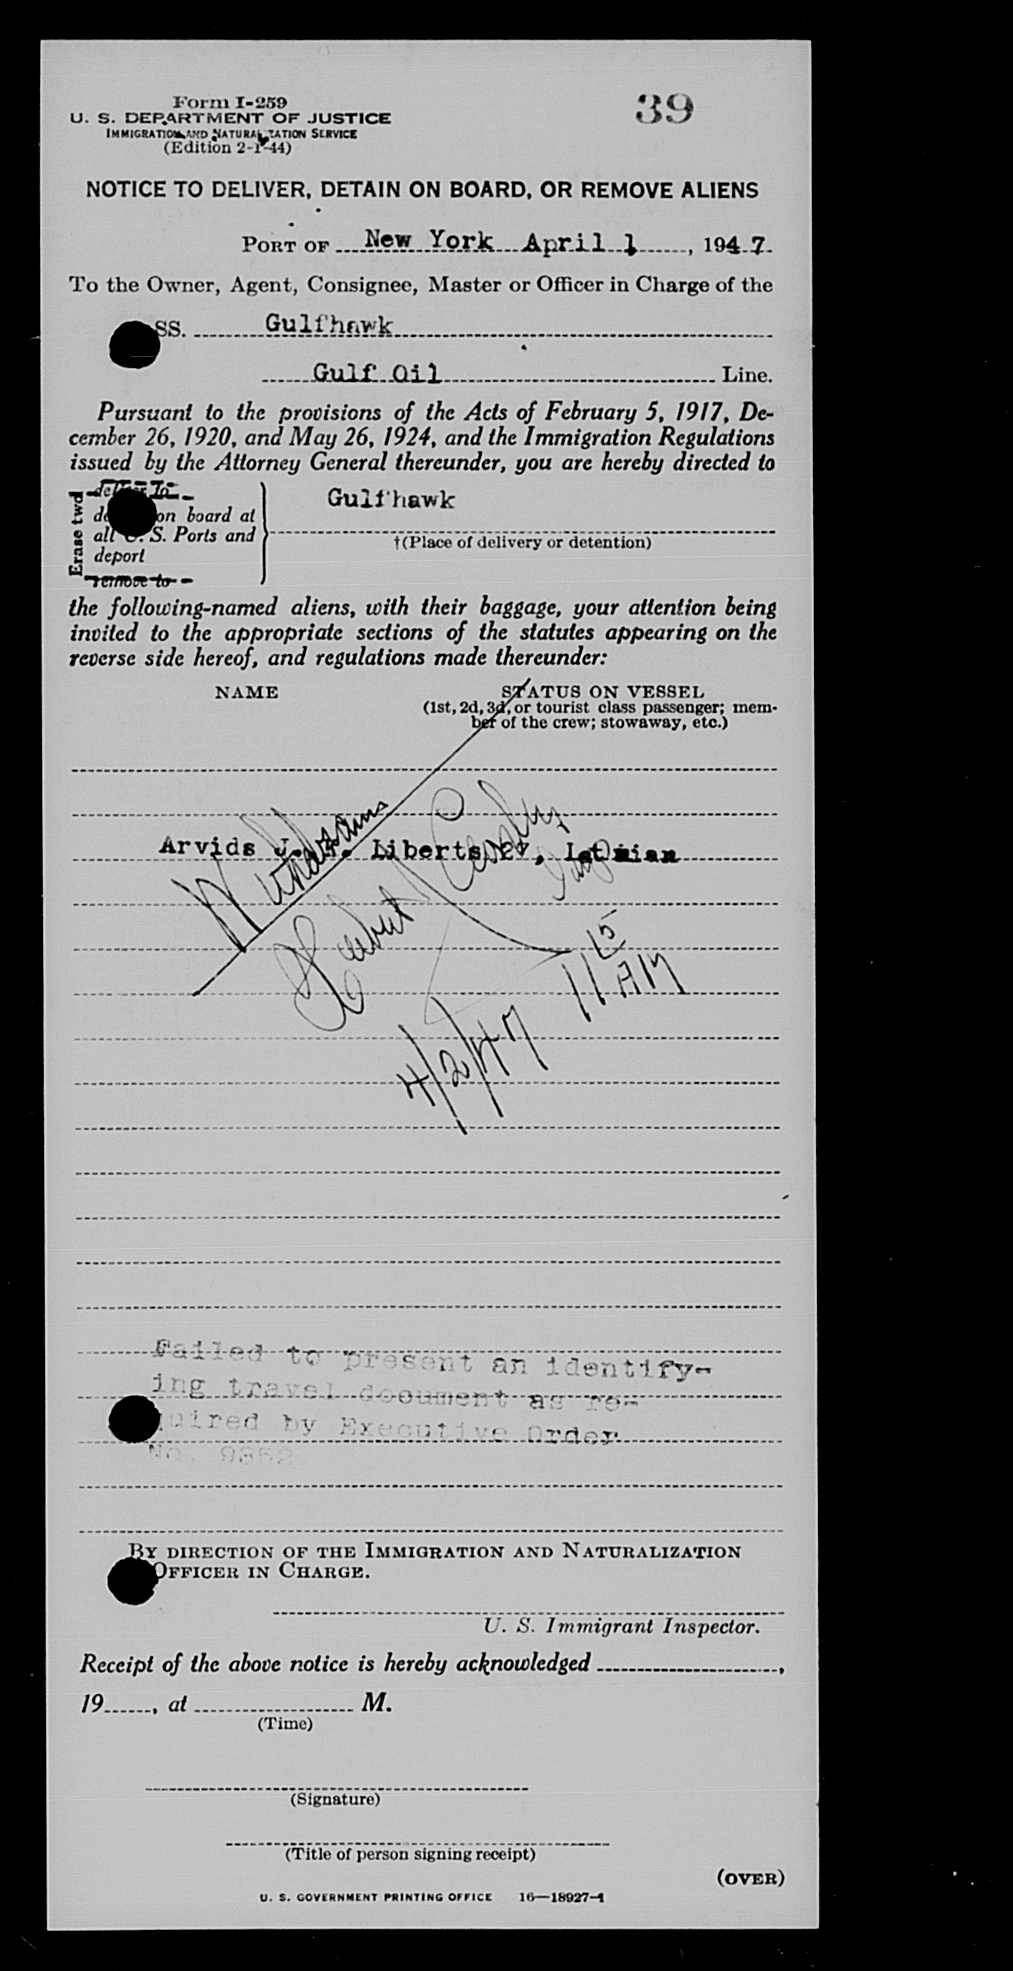 Form I-259
39
U. S. DEPARTMENT OF JUSTICE
IMMIGRATION AND NATURALIZATION SERVICE
(Edition 2-1-44)
NOTICE TO DELIVER, DETAIN ON BOARD, OR REMOVE ALIENS
PORT OF New York April 1, 1947
To the Owner, Agent, Consignee, Master or Officer in Charge of the
SS. Gulfhawk
Gulf Oil Line.
Pursuant to the provisions of the Acts of February 5, 1917, De-
cember 26, 1920, and May 26, 1924, and the Immigration Regulations
issued by the Attorney General thereunder, you are hereby directed to
Erase two
deliver to
on board at
all U. S. Ports and
deport
remove to
Gulfhawk
†(Place of delivery or detention)
the following-named aliens, with their baggage, your attention being
invited to the appropriate sections of the statutes appearing on the
reverse side hereof, and regulations made thereunder:
NAME
STATUS ON VESSEL
(1st, 2d, 3d, or tourist class passenger; mem-
ber of the crew; stowaway, etc.)
Arvids J. Liberts
4/2/47 11 15 AM
Failed to present an identify-
ing travel document as re-
quired by Executive Order
No. 9352
BY DIRECTION OF THE IMMIGRATION AND NATURALIZATION
OFFICER IN CHARGE.
U. S. Immigrant Inspector.
Receipt of the above notice is hereby acknowledged ,
19 , at M.
(Time)
(Signature)
(Title of person signing receipt)
(OVER)
U. S. GOVERNMENT PRINTING OFFICE 16—18927-1